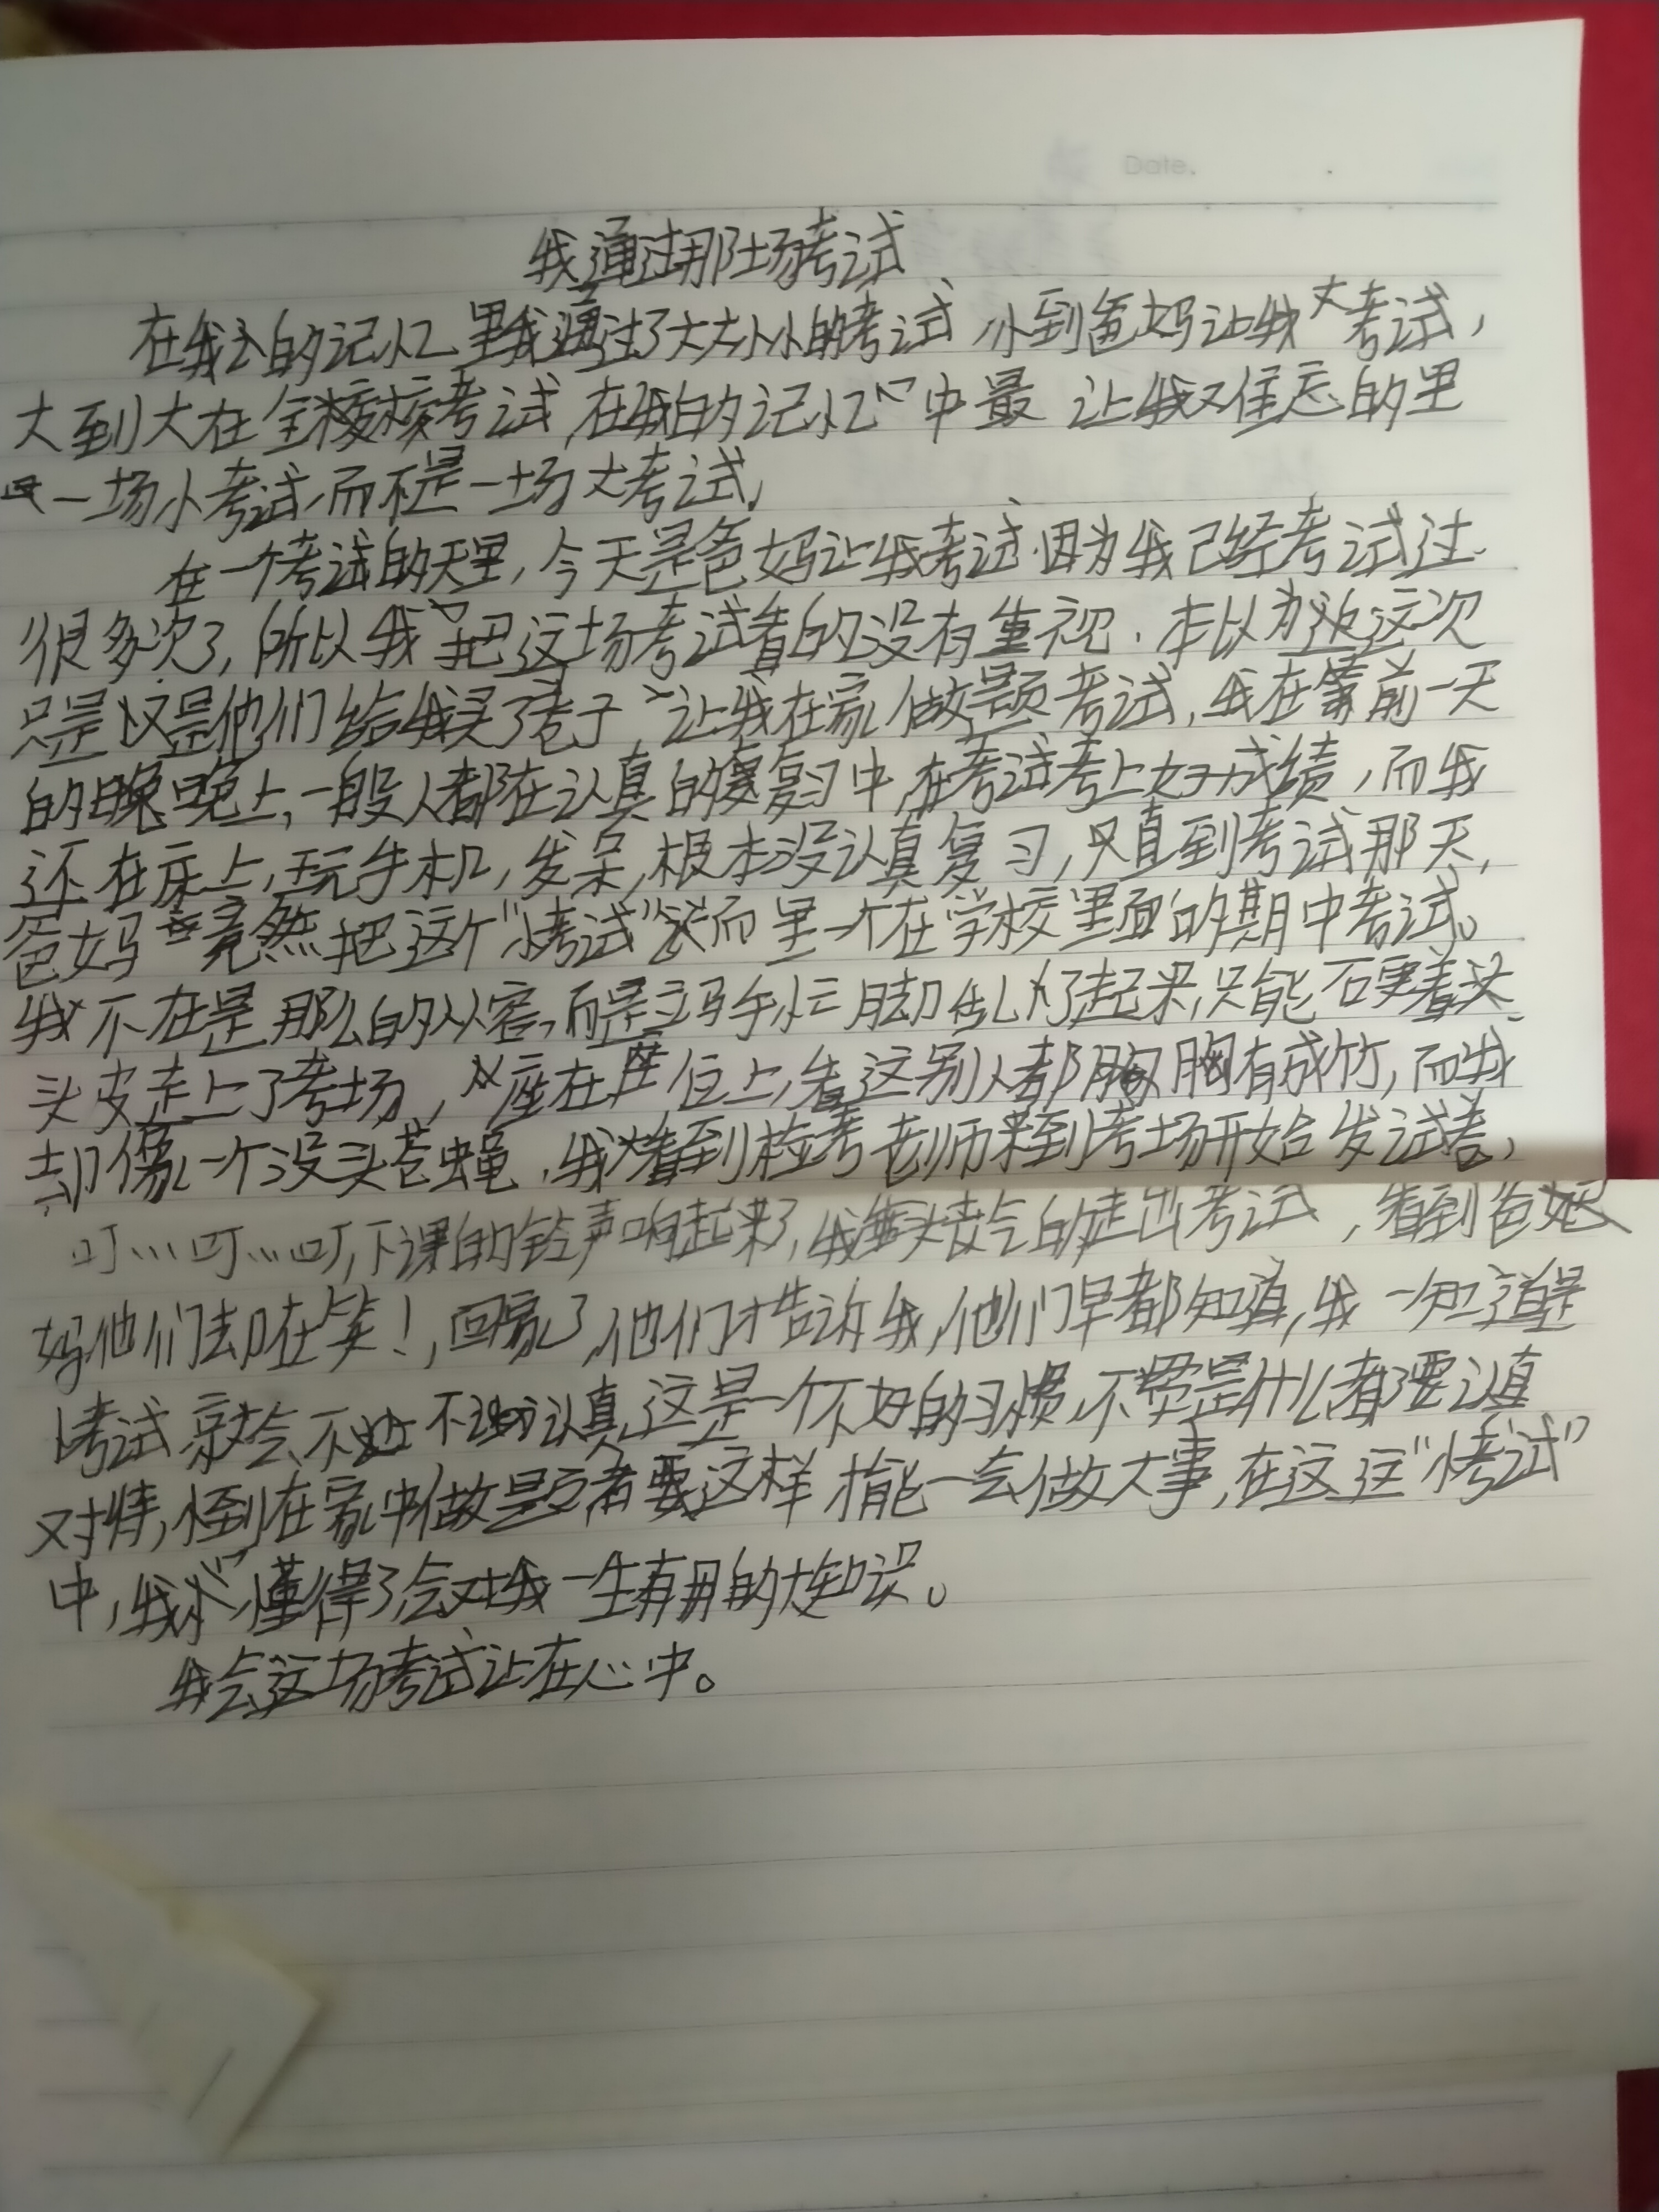 Date.
我通过那场考试
在我的记忆里我通过了大大小小的考试,小到爸妈让我考试,
大到大在全校考试,在我的记忆中最让我又难忘的里
一场小考试,而不是一场大考试,
在一个考试的天里,今天是爸妈让我考试.因为我已经考试过
很多次了,所以我把这场考试看的没有重视.本以为这次
只是又是他们给我买了卷子,让我在家做题考试,我在前一天
的晚上,一般人都在认真的复习中,在考试考上好成绩,而我
还在床上,玩手机,发呆,根本没认真复习,只直到考试那天,
爸妈竟然把这个“考试”而里一个在学校里面的期中考试。
我不在是那么的从容,而是立马手忙脚乱了起来,只能硬着头
头皮走上了考场,座在座位上,看这别人都胸有成竹,而我
却像一个没头苍蝇.我看到检考老师来到考场开始发试卷,
叮…叮…叮,下课的铃声响起来了,我垂头丧气的走出考试,看到爸
妈他们却在笑!,回家了,他们才告诉我,他们早都知道,我一知道是
考试就会不认真,这是一个不好的习惯,不管是什么都要认真
对待,小到在家中做题都要这样才能一会做大事,在这这“考试”
中,我懂得了会对我一生有用的大知识。
我会这场考试让在心中。